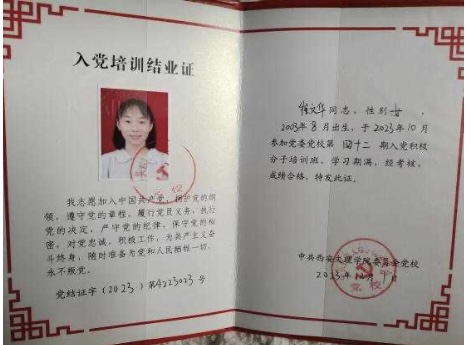 入党培训结业证
我志愿加入中国共产党，拥护党的纲
领，遵守党的章程，履行党员义务，执行
党的决定，严守党的纪律，保守党的秘
密，对党忠诚，积极工作，为共产主义奋
斗终身，随时准备为党和人民牺牲一切，
永不叛党。
党结证字（2023）第4223023号
文华同志，性别女，
2003年8月出生，于2023年10月
参加党委党校第四十二期入党积极
分子培训班，学习期满，经考核，
成绩合格，特发此证。
中共西安文理学院委员会党校
2023年12月
党校